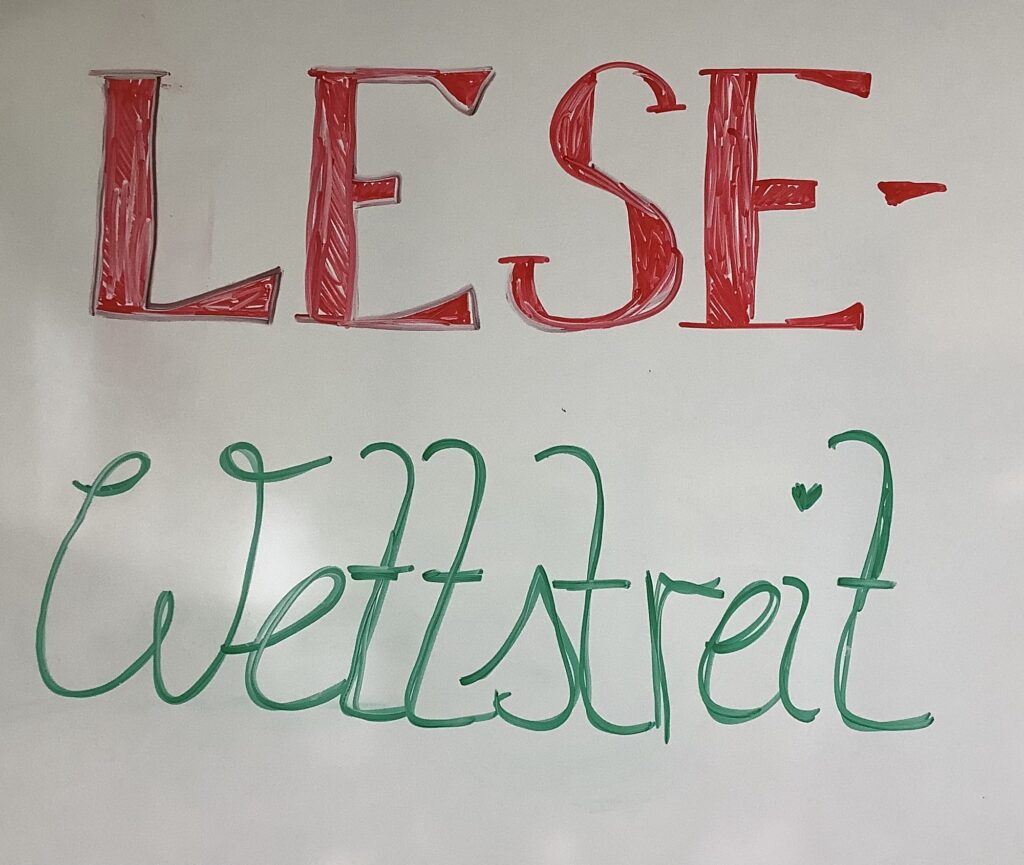 LESE-
Wettstreit